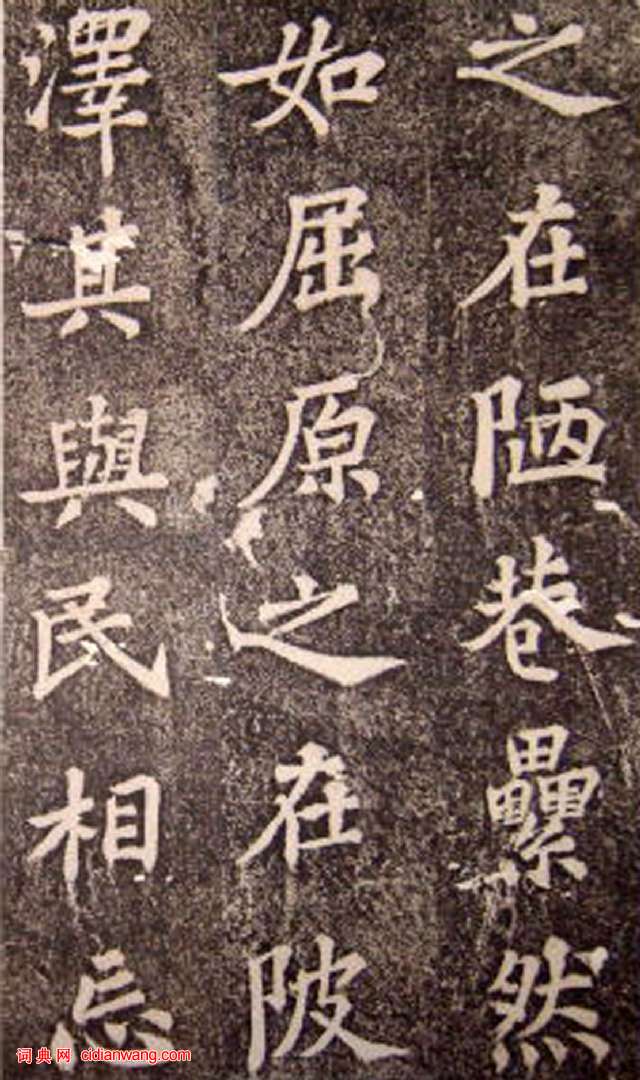 之在陋巷纍然
如屈原之在陂
澤其與民相忘
词典网 cidianwang.com